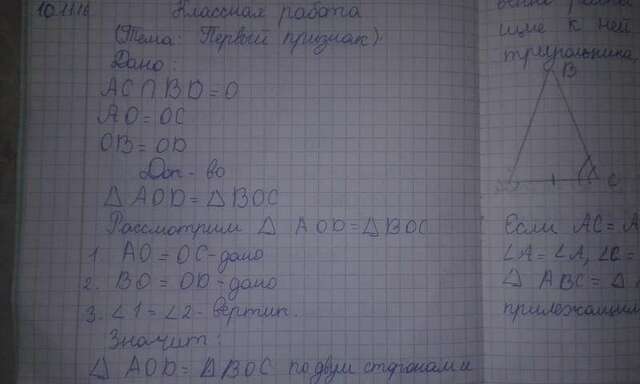 10.11.16
Классная работа
(Тема: Первый признак)
Дано:
AC ∩ BD = O
AO = OC
OB = OD
Док-во
△ AOD = △ BOC
Рассмотрим △ AOD = △ BOC
1. AO = OC - дано
2. BO = OD - дано
3. ∠1 = ∠2 - вертик.
Значит:
△ AOD = △ BOC по двум сторонам и
щие к ней
треугольника
B
C
Если AC = A
∠A = ∠A, ∠C =
△ ABC = △
прилежащим